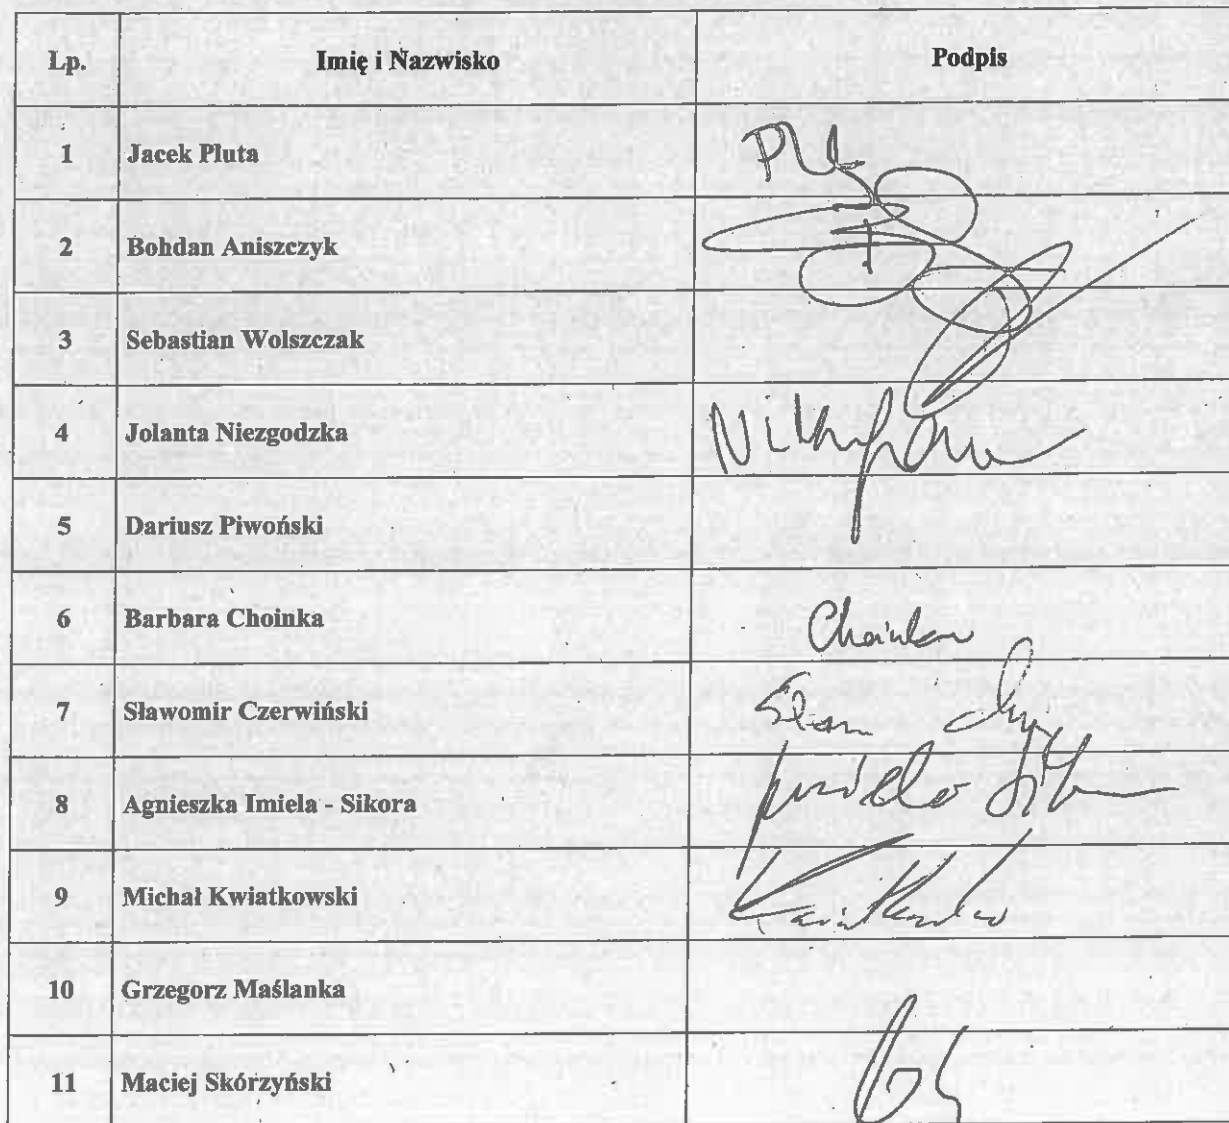 Lp. Imię i Nazwisko Podpis
1 Jacek Pluta
2 Bohdan Aniszczyk
3 Sebastian Wolszczak
4 Jolanta Niezgodzka
5 Dariusz Piwoński
6 Barbara Choinka Choinka
7 Sławomir Czerwiński
8 Agnieszka Imiela - Sikora
9 Michał Kwiatkowski
10 Grzegorz Maślanka
11 Maciej Skórzyński